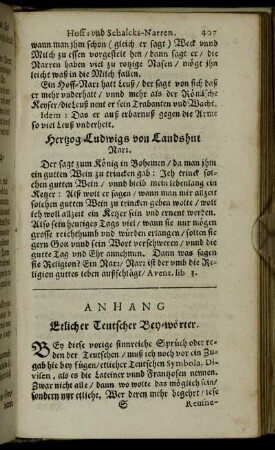 Hoff= vnd Schalcks-Narren. 407
wann man jhm schon (gleich er sagt) Weck vnnd
Milch zu essen vorgestelt hen / dann sagt er / die
Narren haben viel zu rozige Nasen / mögt jhn
leicht waß in die Milch fallen.
Ein Hoff-Narr hatt Leuß / der sagt von sich daß
er mehr vnderhalt / vnnd mehr als der Römische
Keyser / die Leuß nent er sein Trabanten vnd Wacht.
Idem: Das er auß erbarmuß gegen die Arme
so viel Leuß vnderhelt.
Hertzog Ludwigs von Landshut
Narr.
Der sagt zum König in Bohemen / da man jhm
ein gutten Wein zu trincken gab: Ich trinck sol-
chen gutten Wein / vnnd bleib mein lebenlang ein
Kezer: Alß wolt er sagen / wann man mir allzeit
solchen gutten Wein zu trincken geben wolte / wolt
ich woll allzeit ein Ketzer sein vnd ernent werden.
Also sein heutiges Tags viel / wann sie nur mögen
grosse reichthumb vnd würden erlangen / solten sie
gern Gott vnnd sein Wort verschweren / vnnd die
gutte Tag vnd Ehr annehmen. Dann was sagen
sie Religion? Ein Narr / Narr ist der vnnb die Re-
ligion guttes leben außschlägt / Avent. lib 3.
ANHANG
Etlicher Teutscher Bey-wörter.
BEy diese vorige sinnreiche Sprüch oder re-
den der Teutschen / muß ich noch vor ein Zu-
gab hie bey fügen / etlicher Teutschen Symbola. Di-
visen / als es die Lateiner vnnd Frantzosen nennen.
Zwar nicht alle / dann wo wolte das möglich sein /
sondern nur etliche, Wer deren mehr begehrt / lese
S Reusne-